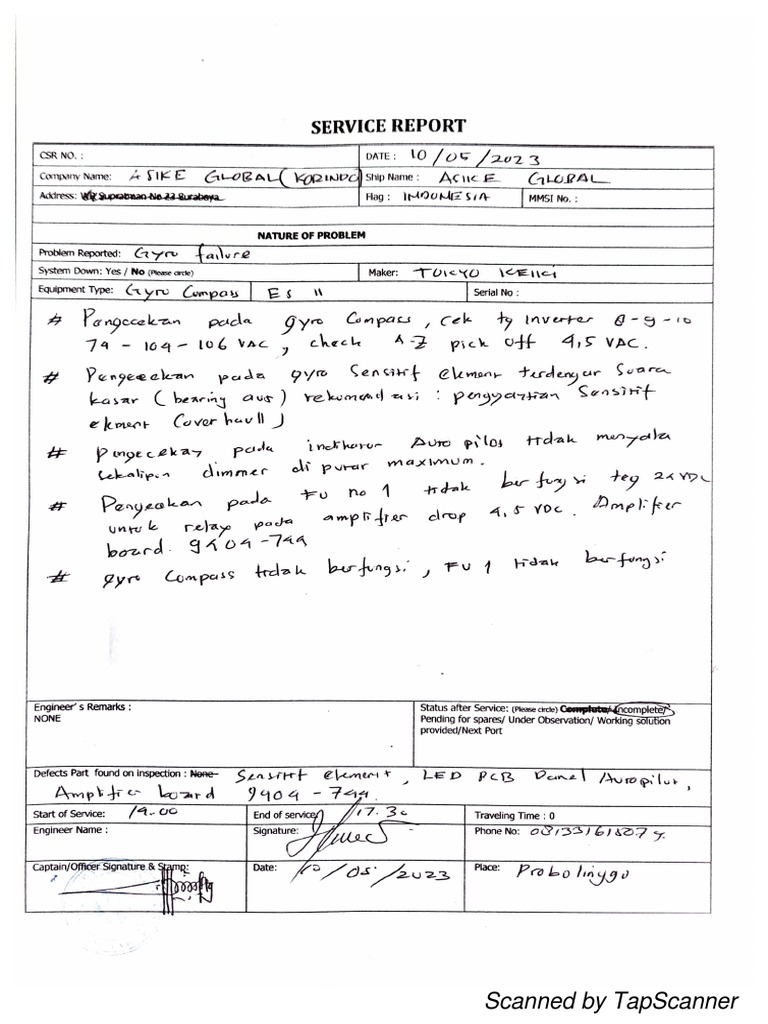 SERVICE REPORT
CSR NO. : DATE : 10/05/2023
Company Name: ASIKE GLOBAL (KORINDO) Ship Name : ASIKE GLOBAL
Address: WR Supratman No 23 Surabaya Flag : INDONESIA MMSI No. :
NATURE OF PROBLEM
Problem Reported: Gyro failure
System Down: Yes / No (Please circle) Maker: TOKYO KEIKI
Equipment Type: Gyro Compass ES 11 Serial No :
# Pengecekan pada gyro Compass, cek tg inverter 8-9-10
74 - 104 - 106 VAC, check A-Z pick off 4,5 VAC.
# Pengecekan pada gyro Sensitif element terdengar suara
kasar (bearing aus) rekomendasi : penggantian Sensitif
element (overhaull)
# pengecekan pada indikator Auto pilot tidak menyala
sekalipun dimmer di putar maximum.
# Pengecekan pada FU no 1 tidak berfungsi teg 24 VDC
untuk relay pada amplifier drop 4,5 VDC. Amplifier
board. 9404-744
# gyro Compass tidak berfungsi, FU 1 tidak berfungsi
Engineer's Remarks :
NONE
Status after Service: (Please circle) Complete/ Incomplete/
Pending for spares/ Under Observation/ Working solution
provided/Next Port
Defects Part found on inspection : None Sensitif element, LED PCB Panel Autopilot,
Amplifier board 9404 - 744.
Start of Service: 14.00 End of service: 17.30 Traveling Time : 0
Engineer Name : Signature: Phone No:
Captain/Officer Signature & Stamp: Date: 10/05/2023 Place: Probolinggo
Scanned by TapScanner